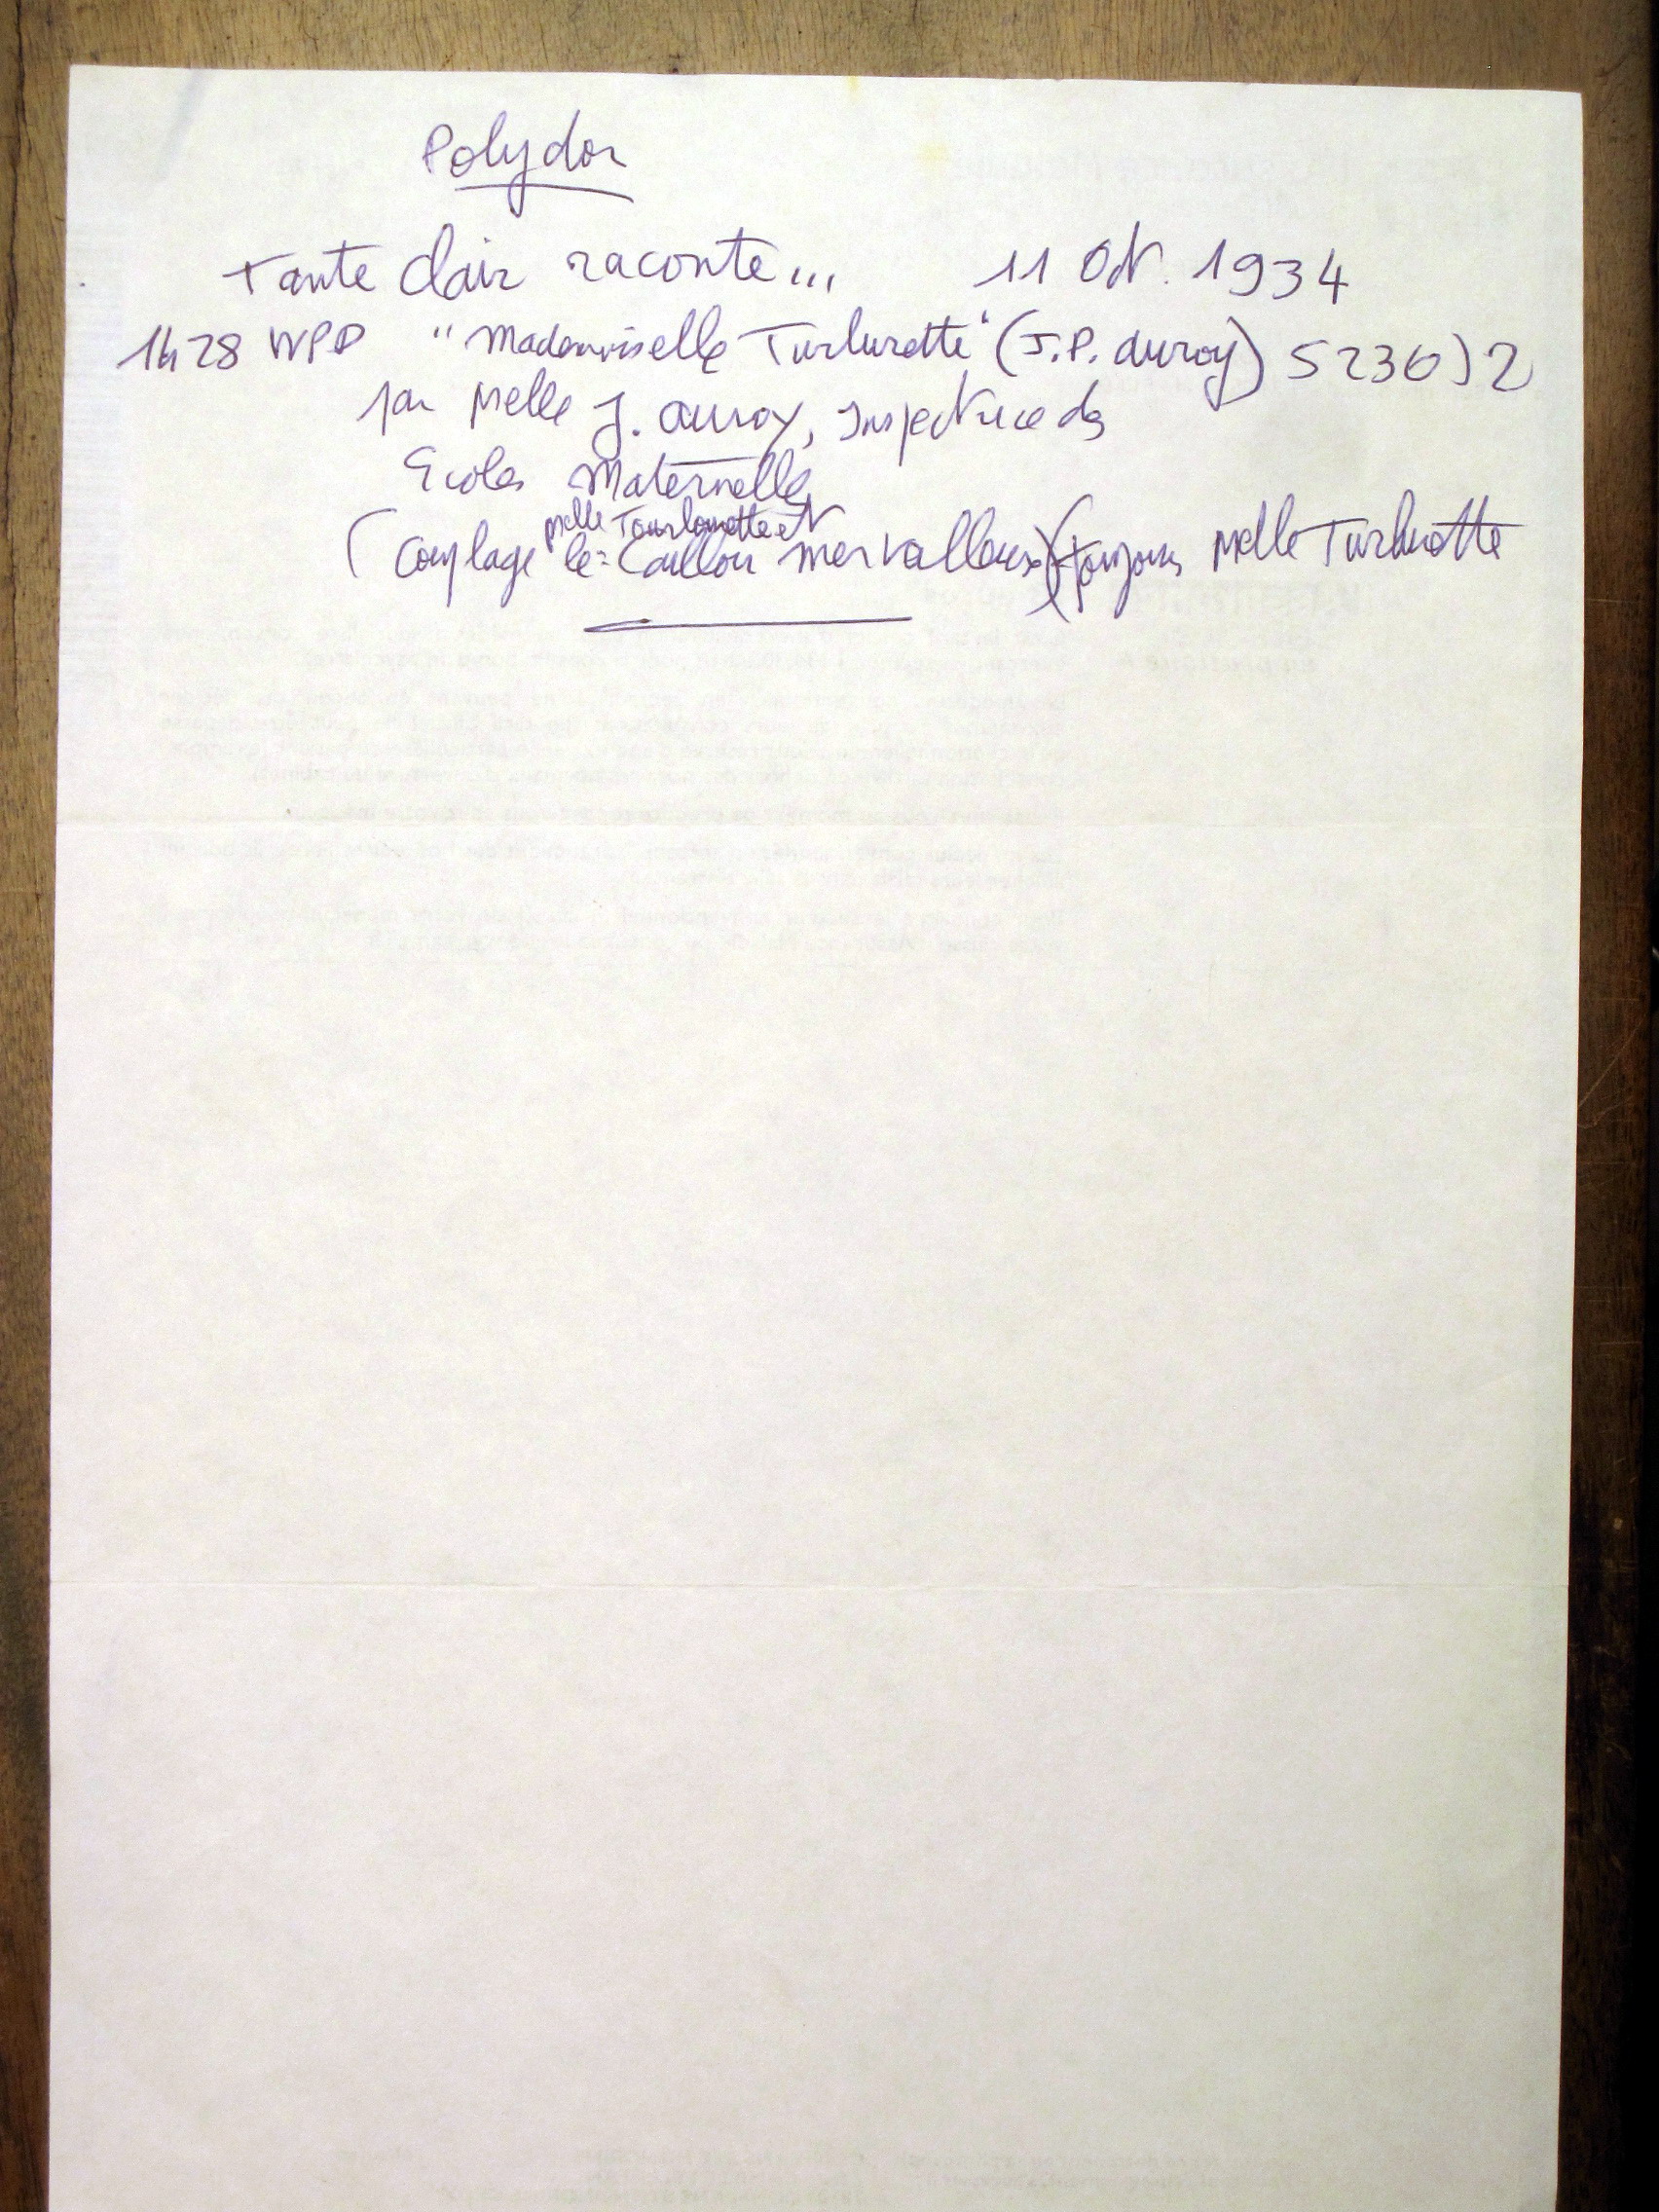 Polydor
Tante Clair raconte... 11 Oct. 1934
1428 WPP "Mademoiselle Turlurette" (J.P. auroy) 5236)2
par Melle J. auroy, Inspectrice des
Ecoles Maternelles
Melle Tourlourette et
(Couplage le = Caillou merveilleux) (toujours Melle Turlurette